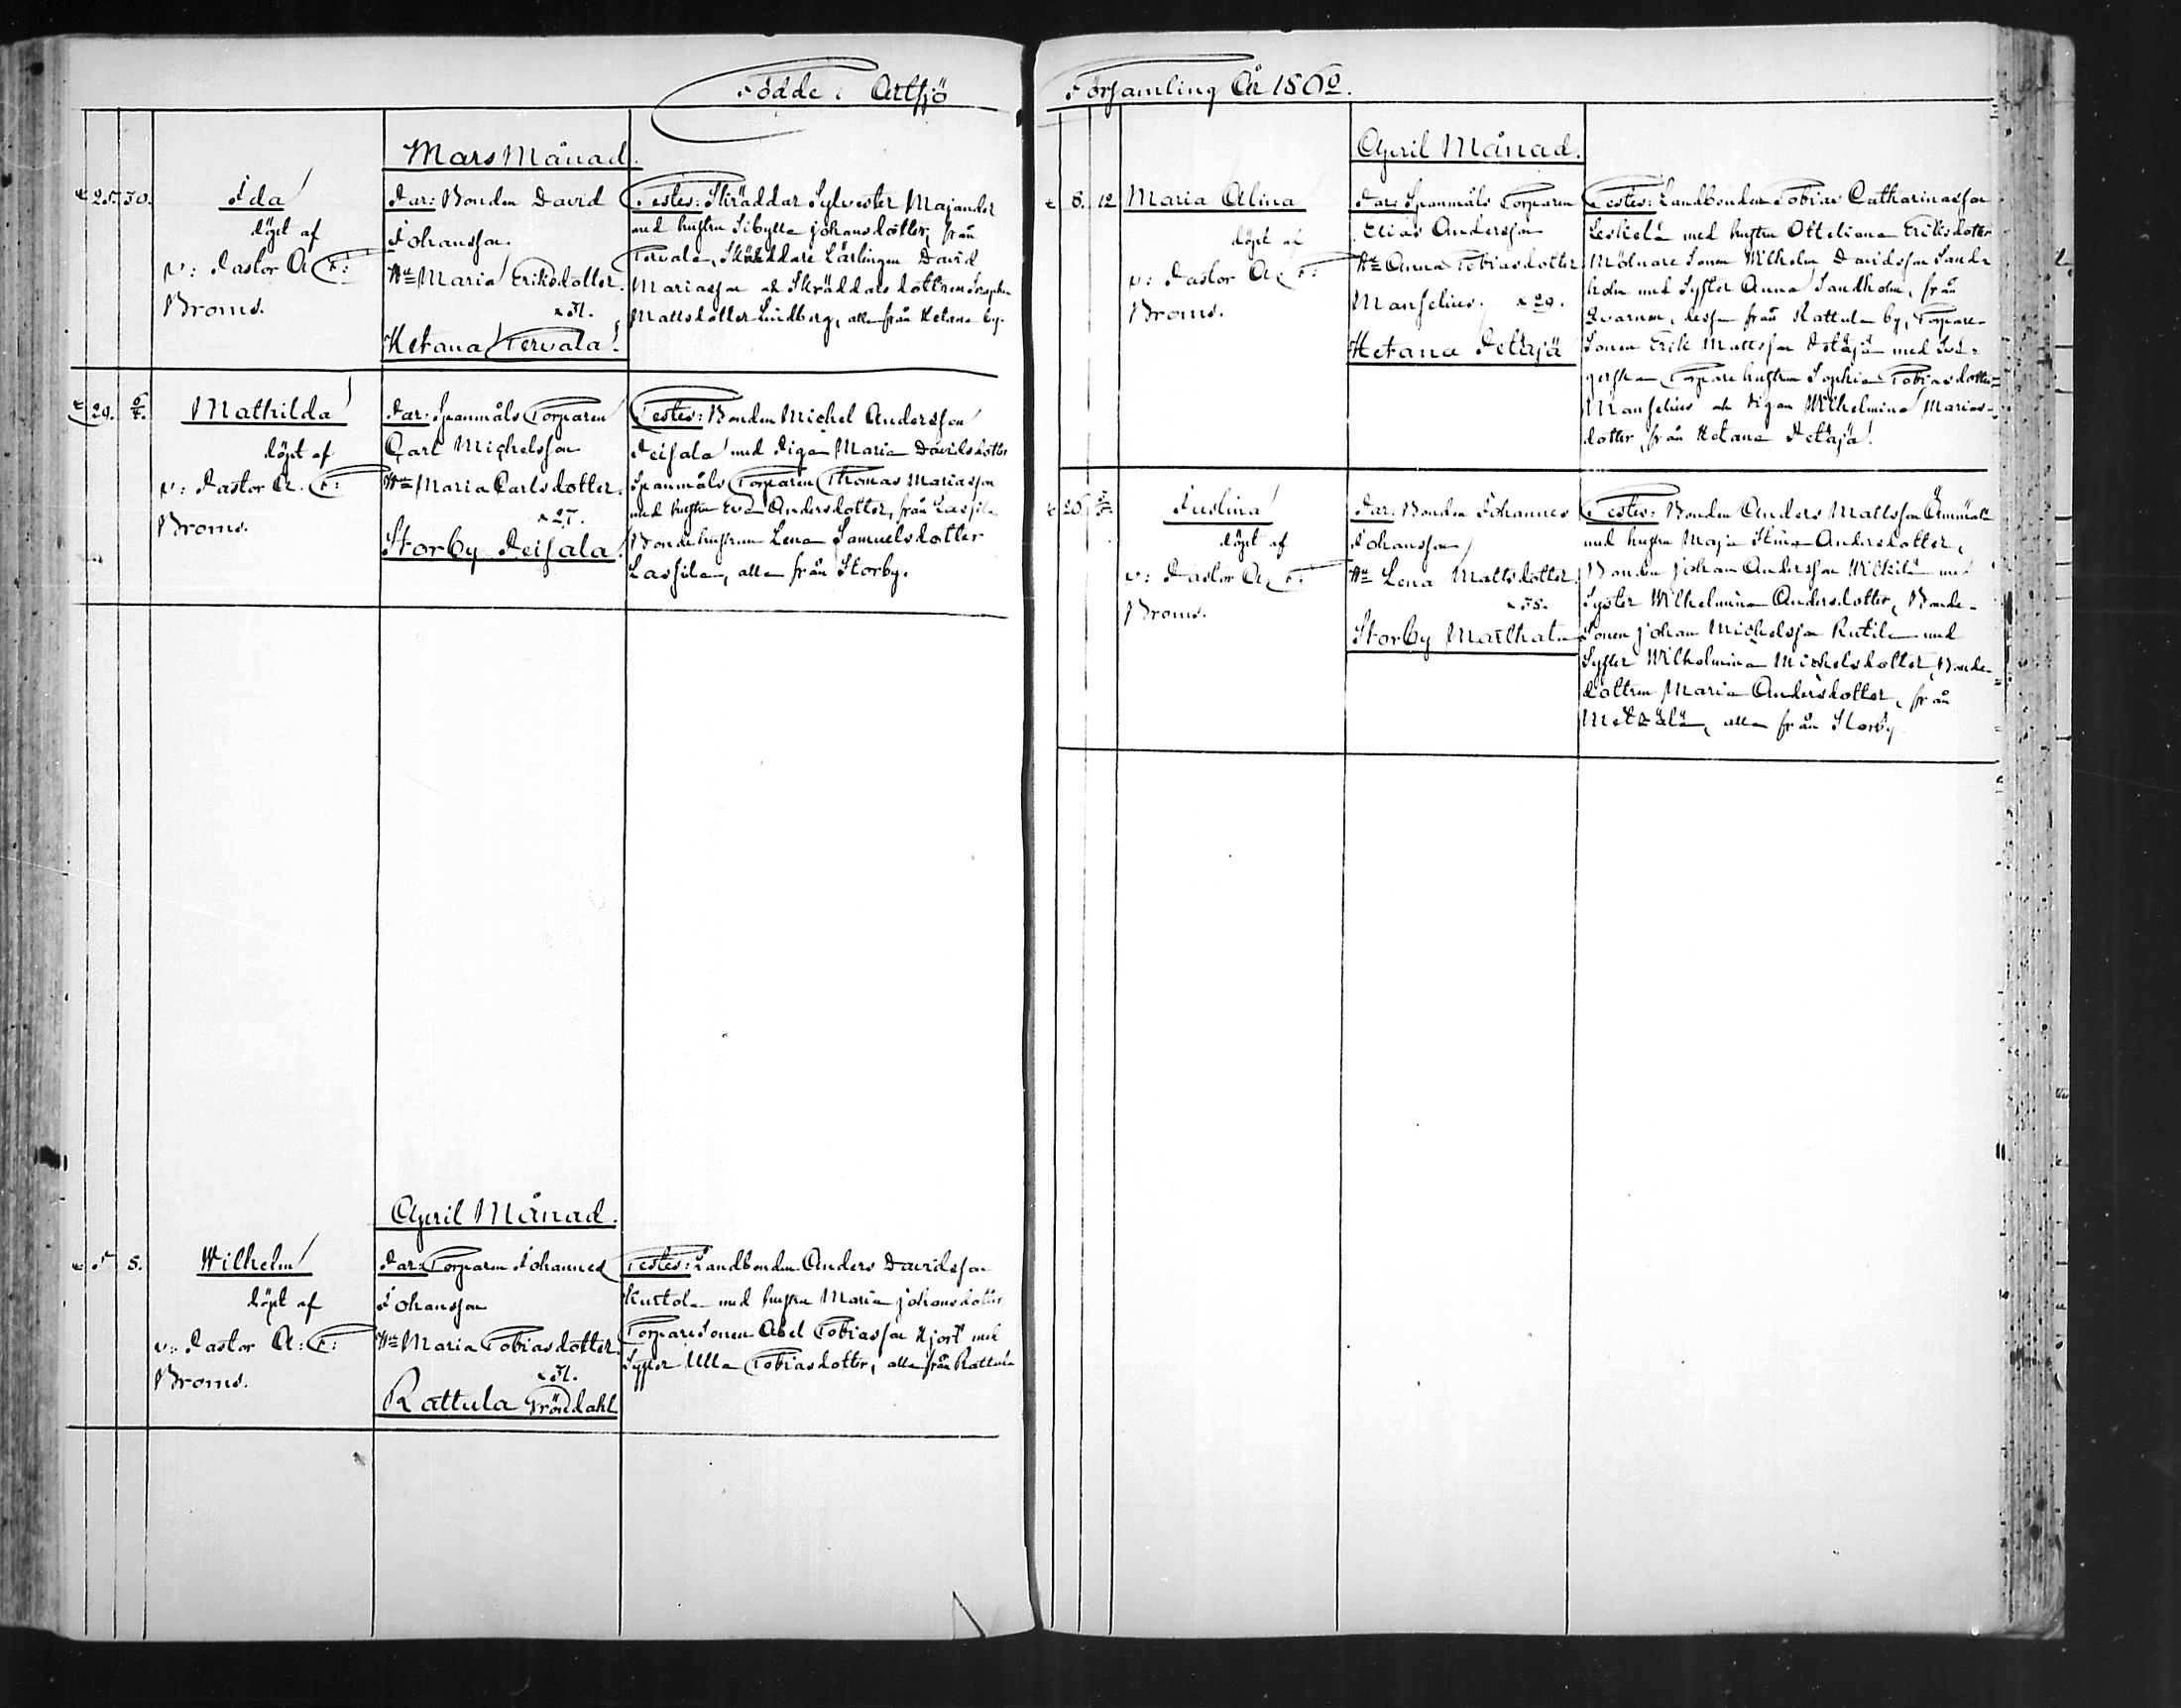 Födde i Artsjö
Församling År 1862.
Mars Månad.
25. 30. Ida
döpt af
v: Pastor A. F:
Broms.
Far: Bonden David
Johansson.
Hu Maria Eriksdotter.
31.
Ketana Tervala.
Testes: Skräddar Sylvester Majander
med hustru Sibylla Johansdotter, från
Tervala, Skräddare Lärlingen David
Mariasson och Skräddare dottren
Mattsdotter Lindberg, alla från Ketana by.
29. Mathilda
döpt af
v: Pastor A. F:
Broms.
Far: Spanmåls Torparen
Carl Michelsson
Hu Maria Carlsdotter.
27.
Storby Peisala.
Testes: Bonden Michel Andersson
Peisala med Pigan Maria Davidsdotter
Spanmåls Torparen Thomas Mariasson
med hustru Eva Andersdotter, från Lassila
Bondehustrun Lena Samuelsdotter
Lassila, alla från Storby.
April Månad.
5 8. Wilhelm
döpt af
v: Pastor A: F:
Broms.
Far: Torparen Johannes
Johansson
Hu Maria Tobiasdotter
31.
Rattula Fröndahl
Testes: Landbonden Anders Davidsson
Kurtola med hustru Maria Johansdotter
Torparesonen Abel Tobiasson Hjort med
Syster Ulla Tobiasdotter, alla från Rattula
April Månad.
8. 12 Maria Alina
döpt af
v: Pastor A. F:
Broms.
Far: Spanmåls Torparen
Elias Andersson
Hu Anna Tobiasdotter
Manselius. 29.
Ketana Petäjä
Testes: Landbonden Tobias Catharinasson
Leskelä med hustru Otteliana Eriksdotter
Mölnare Sonen Wilhelm Davidsson Sand
holm med Syster Anna Sandholm, från
Qvarnen, dessa från Rattula by, Torpare
Sonen Erik Mattsson Petäjä med Svä-
gerskan Torpare hustrun Sophia Tobiasdotter
Manselius och Pigan Wilhelmina Marias-
dotter, från Ketana Petäjä.
26. Justina
döpt af
v: Pastor A. F:
Broms.
Far: Bonden Johannes
Johansson
Hu Lena Mattsdotter
35.
Storby Marthala
Testes: Bonden Anders Mattsson Ämmälä
med hustru Maja Stina Andersdotter,
Bonden Johan Andersson Wilkilä med
Syster Wilhelmina Andersdotter, Bonde-
Sonen Johan Michelsson Rutila med
Syster Wilhelmina Michelsdotter, Bonde-
dottren Maria Andersdotter, från
Metzälä, alla från Storby